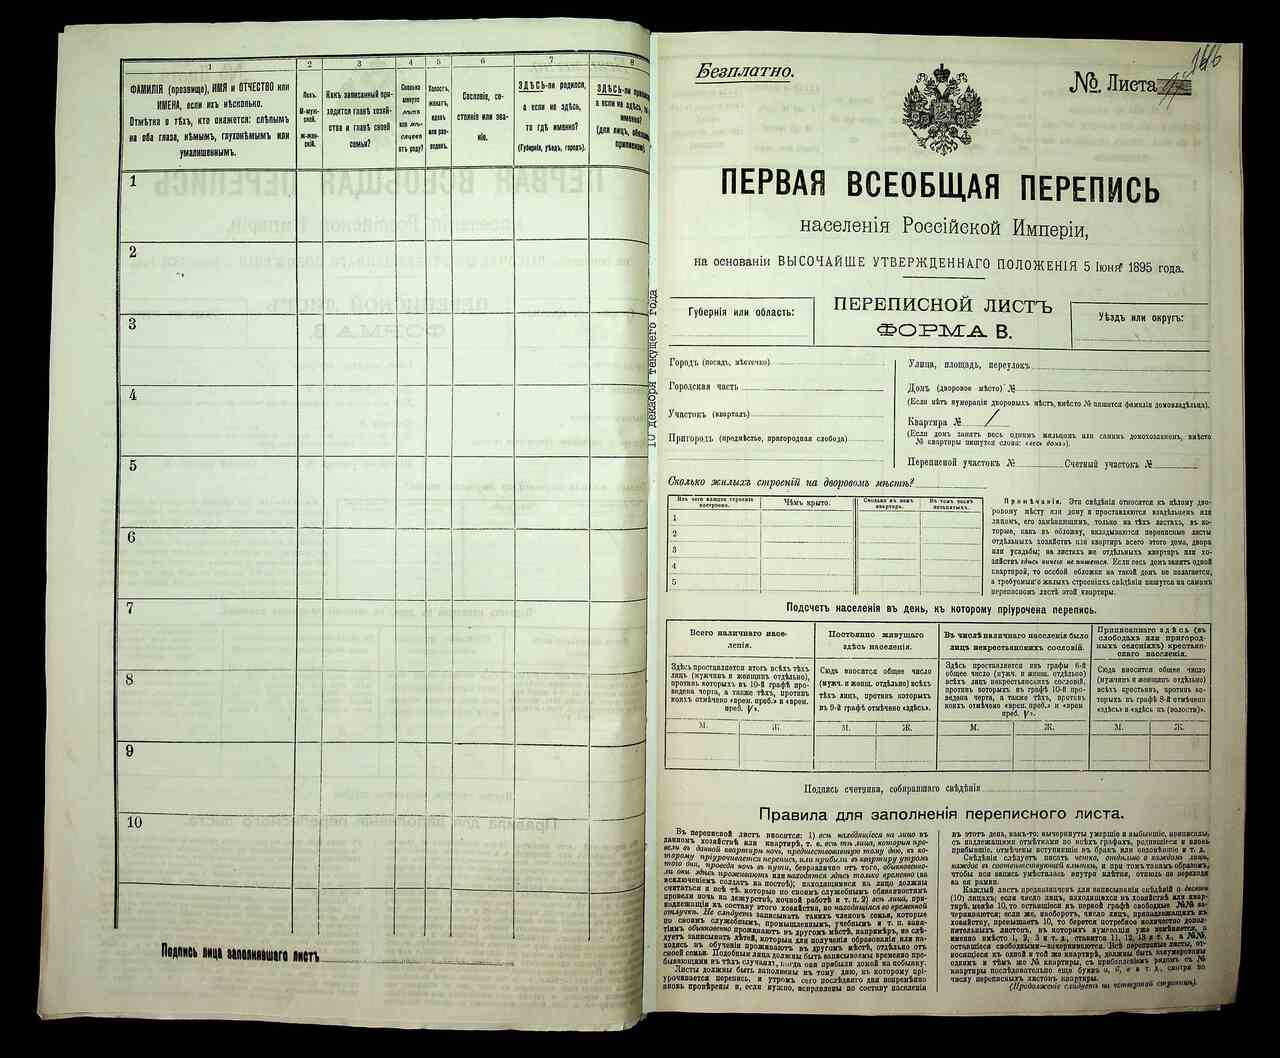 1 2 3 4 5 6 7 8
ФАМИЛІЯ (прозвище), ИМЯ и ОТЧЕСТВО или
ИМЕНА, если ихъ нѣсколько.
Отмѣтка о тѣхъ, кто окажется: слѣпымъ
на оба глаза, нѣмымъ, глухонѣмымъ или
умалишеннымъ.
Полъ.
М-муж-
ской.
ж-жен-
скій.
Какъ записанный при-
ходится главѣ хозяй-
ства и главѣ своей
семьи?
Сколько
минуло
лѣтъ
или мѣ-
сяцевъ
отъ роду?
Холостъ,
женатъ,
вдовъ
или раз-
веденъ.
Сословіе, со-
стояніе или зва-
ніе.
ЗДѢСЬ-ли родился,
а если не здѣсь,
то гдѣ именно?
(Губернія, уѣздъ, городъ).
ЗДѢСЬ-ли
а если не здѣсь,
именно?
(для лицъ,
1
2
3
4
5
6
7
8
9
10
Подпись лица заполнившаго листъ
10 декабря текущего года
Безплатно.
№ Листа
ПЕРВАЯ ВСЕОБЩАЯ ПЕРЕПИСЬ
населенія Россійской Имперіи,
на основаніи ВЫСОЧАЙШЕ УТВЕРЖДЕННАГО ПОЛОЖЕНІЯ 5 Іюня 1895 года.
Губернія или область:
ПЕРЕПИСНОЙ ЛИСТЪ
ФОРМА В.
Уѣздъ или округъ:
Городъ (посадъ, мѣстечко)
Городская часть
Участокъ (кварталъ)
Пригородъ (предмѣстье, пригородная слобода)
Улица, площадь, переулокъ
Домъ (дворовое мѣсто) №
(Если нѣтъ нумераціи дворовыхъ мѣстъ, вмѣсто № пишется фамилія домовладѣльца).
Квартира № 1
(Если домъ занятъ весь однимъ жильцомъ или самимъ домохозяиномъ, вмѣсто
№ квартиры пишутся слова: «весь домъ»).
Переписной участокъ № Счетный участокъ №
Сколько жилыхъ строеній на дворовомъ мѣстѣ?
Изъ чего каждое строеніе
построено.
Чѣмъ крыто.
Сколько въ немъ
квартиръ.
Въ томъ числѣ
незанятыхъ.
1
2
3
4
5
Примѣчанія. Эти свѣдѣнія относятся къ цѣлому дво-
ровому мѣсту или дому и проставляются владѣльцемъ или
лицомъ, его замѣняющимъ, только на тѣхъ листахъ, въ ко-
торые, какъ въ обложку, вкладываются переписные листы
отдѣльныхъ хозяйствъ или квартиръ всего этого дома, двора
или усадьбы; на листахъ же отдѣльныхъ квартиръ или хо-
зяйствъ здѣсь ничего не пишется. Если весь домъ занятъ одной
квартирой, то особой обложки на такой домъ не полагается,
а требуемыя о жилыхъ строеніяхъ свѣдѣнія пишутся на самомъ
переписномъ листѣ этой квартиры.
Подсчетъ населенія въ день, къ которому пріурочена перепись.
Всего наличнаго насе-
ленія.
Здѣсь проставляется итогъ всѣхъ тѣхъ
лицъ (мужчинъ и женщинъ отдѣльно),
противъ которыхъ въ 10-й графѣ про-
ведена черта, а также тѣхъ, противъ
коихъ отмѣчено «врем. преб.» и «врем.
преб. V».
Постоянно живущаго
здѣсь населенія.
Сюда вносится общее число
(муж. и женщ. отдѣльно) всѣхъ
тѣхъ лицъ, противъ которыхъ
въ 9-й графѣ отмѣчено «здѣсь».
Въ числѣ наличнаго населенія было
лицъ некрестьянскихъ сословій.
Здѣсь проставляется изъ графы 6-й
общее число (мужч. и женщ. отдѣльно)
всѣхъ лицъ некрестьянскихъ сословій,
противъ которыхъ въ графѣ 10-й про-
ведена черта, а также тѣхъ, противъ
коихъ отмѣчено «врем. преб.» и «врем
преб. V».
Приписаннаго здѣсь (въ
слободахъ или пригород-
ныхъ селеніяхъ) крестьян-
скаго населенія.
Сюда вносится общее число
(мужчинъ и женщинъ отдѣльно)
всѣхъ крестьянъ, противъ ко-
торыхъ въ графѣ 8-й отмѣчено
«здѣсь» и «здѣсь къ (волости)».
М. Ж. М. Ж. М. Ж. М. Ж.
Подпись счетчика, собиравшаго свѣдѣнія
Правила для заполненія переписного листа.
Въ переписной листъ вносятся: 1) всѣ находящіеся на лицо въ
данномъ хозяйствѣ или квартирѣ, т. е. всѣ тѣ лица, которыя про-
вели въ данной квартирѣ ночь, предшествовавшую тому дню, къ ко-
торому пріурочивается перепись, или прибыли въ квартиру утромъ
того дня, проведя ночь въ пути, безразлично отъ того, обыкновенно-
ли они здѣсь проживаютъ или находятся здѣсь только временно (за
исключеніемъ солдатъ на постоѣ); находящимися на лицо должны
считаться и всѣ тѣ, которые по своимъ служебнымъ обязанностямъ
провели ночь на дежурствѣ, ночной работѣ и т. п. 2) всѣ лица, при-
надлежащія къ составу этого хозяйства, но находящіяся во временной
отлучкѣ. Не слѣдуетъ записывать такихъ членовъ семьи, которые
по своимъ служебнымъ, промышленнымъ, учебнымъ и т. п. заня-
тіямъ обыкновенно проживаютъ въ другомъ мѣстѣ, напримѣръ, не слѣ-
дуетъ записывать дѣтей, которыя для полученія образованія или на-
ходясь въ обученіи проживаютъ въ другомъ мѣстѣ, отдѣльно отъ
своей семьи. Подобныя лица должны быть записываемы временно про-
бывающими въ тѣхъ случаяхъ, когда они прибыли домой на побывку.
Листы должны быть заполнены къ тому дню, къ которому прі-
урочивается перепись, и утромъ сего послѣдняго дня непремѣнно
вновь провѣрены и, если нужно, исправлены по составу населенія
въ этотъ день, какъ-то: вычеркнуты умершіе и выбывшіе, приписаны,
съ надлежащими отмѣтками по всѣхъ графахъ, родившіеся и вновь
прибывшіе, отмѣчены вступившіе въ бракъ или овдовѣвшіе и т. д.
Свѣдѣнія слѣдуетъ писать четко, отдѣльно о каждомъ лицѣ,
каждое въ соотвѣтствующей клѣткѣ, и при томъ такимъ образомъ,
чтобы вся запись умѣсталась внутри клѣтки, отнюдь не переходя
за ея рамки.
Каждый листъ предназначенъ для записыванія свѣдѣній о десяти
(10) лицахъ; если число лицъ, находящихся въ хозяйствѣ или квар-
тирѣ, менѣе 10, то оставшіеся въ первой графѣ свободные №№ за-
черкиваются; если же, наоборотъ, число лицъ, принадлежащихъ къ
хозяйству, превышаетъ 10, то берется потребное количество допол-
нительныхъ листовъ, въ которыхъ нумерація уже измѣняется, а
именно вмѣсто 1, 2, 3 и т. д., ставится 11, 12, 13 и т. д., а №№,
оставшіеся свободными—зачеркиваются. Всѣ переписные листы, от-
носящіеся къ одной и той же квартирѣ, должны быть занумерованы
однимъ и тѣмъ же № квартиры, съ прибавленіемъ рядомъ съ №
квартиры послѣдовательно еще буквъ а, б, в и т. д., смотря по
числу переписныхъ листовъ квартиры.
(Продолженіе слѣдуетъ на четвертой страницѣ).